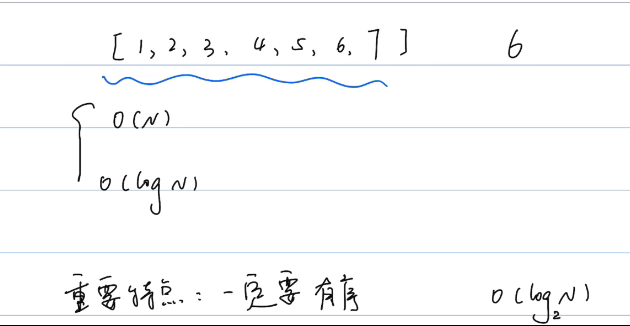 [1, 2, 3, 4, 5, 6, 7] 6
O(N)
O(logN)
重要特点:一定要有序 O(log₂N)